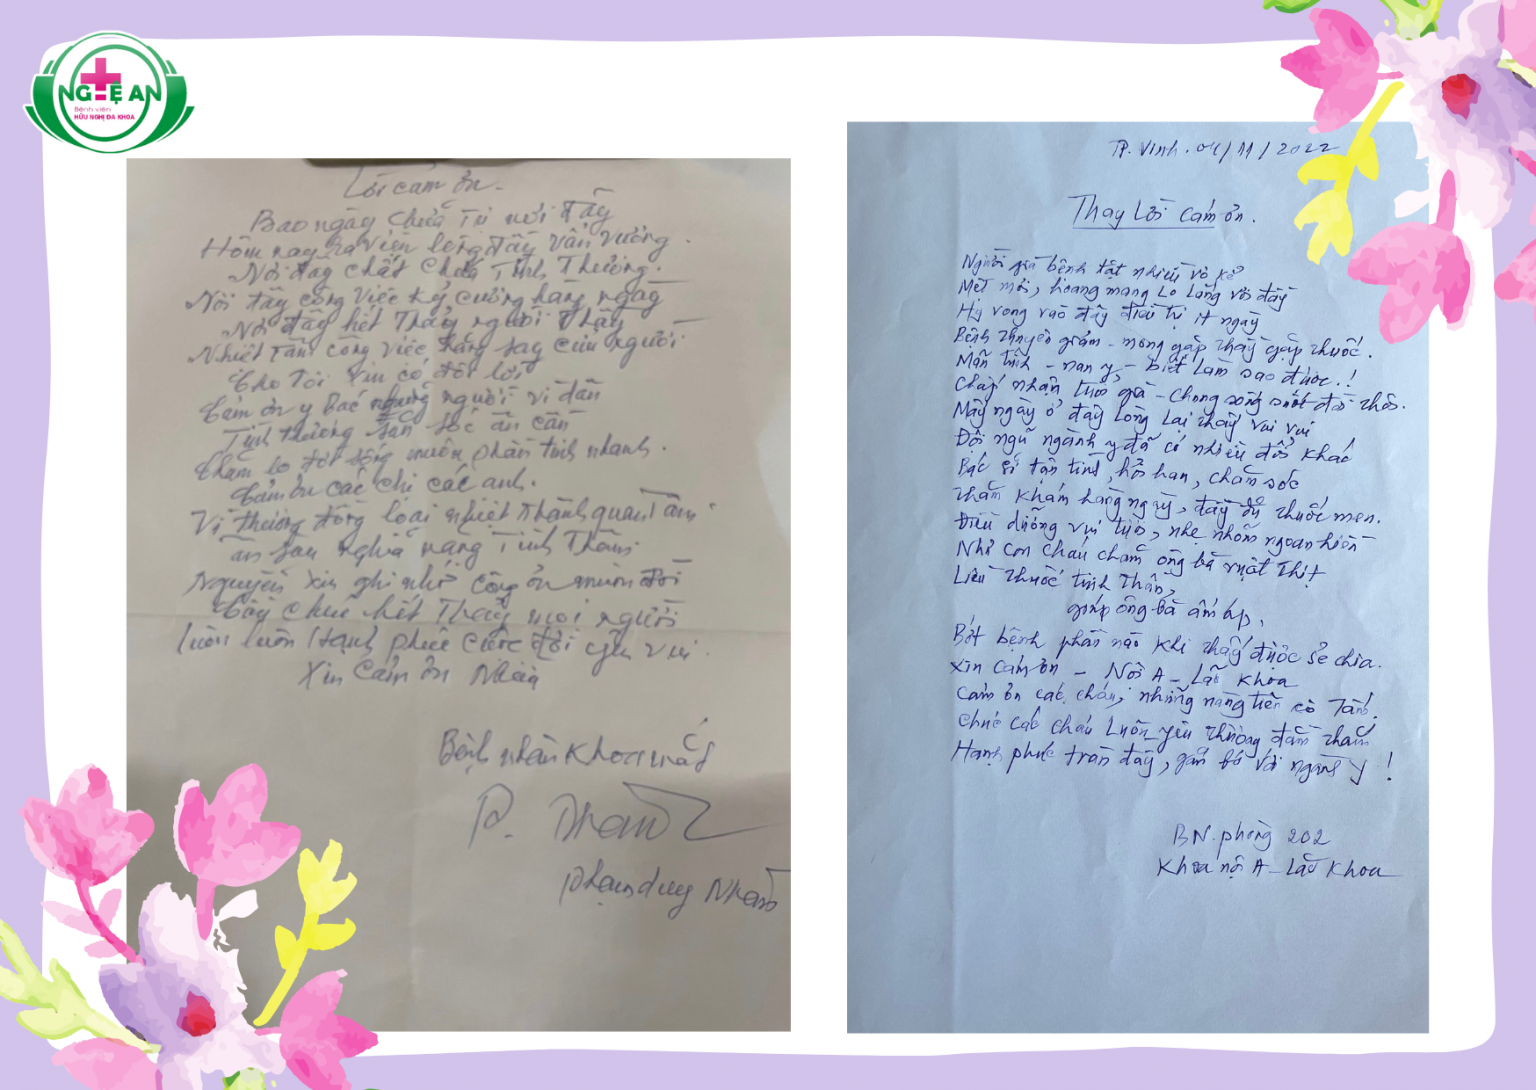 NGHỆ AN
Bệnh viện
HỮU NGHỊ ĐA KHOA
Lời cảm ơn.
Bao ngày chữa trị nơi đây
Hôm nay ra viện lòng đầy vấn vương.
Nơi đây chất chứa tình thương.
Nơi đây công việc kỷ cương hàng ngày
Nơi đây hết thảy người thầy
Nhiệt tâm công việc hăng say cứu người
Cho tôi xin có đôi lời
Cảm ơn y bác những người vì dân
Tình thương săn sóc ân cần
Chăm lo đời sống muôn phần tinh nhanh.
Cảm ơn các chị các anh.
Vì thương đồng loại nhiệt thành quan tâm
ân sau nghĩa nặng tình thâm
Nguyện xin ghi nhớ công ơn muôn đời
Cầu chúc hết thảy mọi người
luôn luôn hạnh phúc cuộc đời yên vui.
Xin cảm ơn nhiều
Bệnh nhân khoa mắt
P. Nhân
Phạm duy Nhân
TP. Vinh. 04/11/2022
Thay Lời cảm ơn.
Người già bệnh tật nhiều vô kể
Mệt mỏi, hoang mang lo lắng với đây
Hy vọng vào đây điều trị ít ngày
Bệnh thuyên giảm - mong gặp thầy gặp thuốc.
Mãn tính - nan y - biết làm sao được.!
Chấp nhận tuổi già - chung sống suốt đời thôi.
Mấy ngày ở đây lòng lại thấy vui vui
Đội ngũ ngành y đã có nhiều đổi khác
Bác sĩ tận tình, hỏi han, chăm sóc
thăm khám hàng ngày, đầy đủ thuốc men.
Điều dưỡng vui tươi, nhẹ nhõm ngoan hiền
Như con cháu chăm ông bà ruột thịt
Liều thuốc tinh thần,
giúp ông bà ấm áp.
Bớt bệnh phần nào khi thấy được sẻ chia.
Xin cảm ơn - Nội A - Lão khoa
Cảm ơn các cháu, những nàng tiên cô Tấm.
Chúc các cháu luôn yêu thương đằm thắm
Hạnh phúc tràn đầy, gắn bó với ngành y !
BN. phòng 202
Khoa nội A - Lão khoa